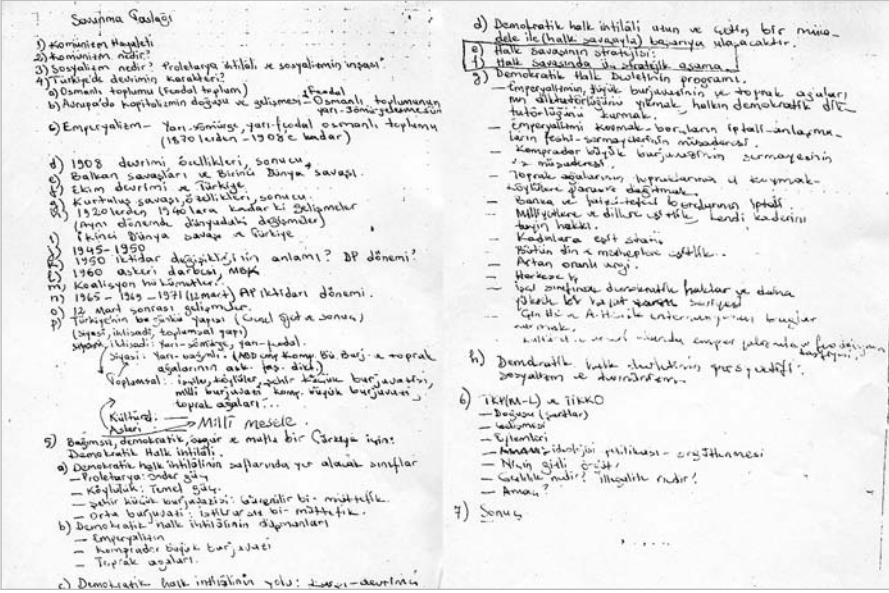 Savunma Taslağı
1) Komünizm Hayaleti
2) Komünizm nedir?
3) Sosyalizm nedir? Proletarya ihtilâli ve sosyalizmin inşası
4) Türkiye'de devrimin karakteri?
a) Osmanlı toplumu (Feodal toplum)
b) Avrupa'da kapitalizmin doğuşu ve gelişmesi - Osmanlı toplumunun
Feodal
yarı-sömürgeleşmesi
c) Emperyalizm - Yarı-sömürge, yarı-feodal osmanlı toplumu
(1870'lerden - 1908'e kadar)
d) 1908 devrimi, özellikleri, sonucu
e) Balkan savaşları ve Birinci Dünya savaşı.
f) Ekim devrimi ve Türkiye
g) Kurtuluş savaşı, özellikleri, sonucu.
1920'lerden 1940'lara kadarki gelişmeler
(Aynı dönemde dünyadaki değişmeler)
İkinci Dünya savaşı ve Türkiye
1945-1950
1950 iktidar değişikliğinin anlamı? DP dönemi?
1960 askeri darbesi, MBK
m) Koalisyon hükümetleri.
n) 1965 - 1969 - 1971 (12 mart) AP iktidarı dönemi.
o) 12 Mart sonrası gelişmeler.
p) Türkiye'nin bugünkü yapısı (Genel özet ve sonuç)
(Siyasi, iktisadi, toplumsal yapı)
iktisadi: Yarı-sömürge, yarı-feodal.
Siyasi: Yarı-bağımlı - (ABD emp. Komp. Bü. Burj. ve toprak
ağalarının ask. faş. dikt.)
Toplumsal: işçiler, köylüler, şehir küçük burjuvazisi,
milli burjuvazi, komp. büyük burjuvazi,
toprak ağaları...
Kültürel:
Askeri: Milli Mesele.
5) Bağımsız, demokratik, özgür ve mutlu bir Türkiye için:
Demokratik Halk ihtilâli.
a) Demokratik halk ihtilâlinin saflarında yer alacak sınıflar
- Proletarya: önder güç
- Köylülük: Temel güç.
- Şehir küçük burjuvazisi: Güvenilir bir müttefik.
- Orta burjuvazi: bir müttefik.
b) Demokratik halk ihtilâlinin düşmanları
- Emperyalizm
- Komprador büyük burjuvazi
- Toprak ağaları.
c) Demokratik halk ihtilâlinin yolu:
d) Demokratik halk ihtilâli uzun ve çetin bir müca-
dele ile (halk savaşıyla) başarıya ulaşacaktır.
e) Halk savaşının stratejisi:
f) Halk savaşında üç stratejik aşama.
g) Demokratik Halk Devletinin programı.
- Emperyalizmin, büyük burjuvazinin ve toprak ağaları-
nın diktatörlüğünü yıkmak, halkın demokratik dik-
tatörlüğünü kurmak.
- Emperyalizmi kovmak - borçların iptali - anlaşma-
ların feshi - sermayelerinin müsaderesi.
- Komprador büyük burjuvazinin sermayesinin
müsaderesi.
- Toprak ağalarının topraklarına el koymak -
köylülere parasız dağıtmak.
- Banka ve tefeci borçlarının iptali.
- Milliyetlere ve dillere eşitlik, kendi kaderini
tayin hakkı.
- Kadınlara eşit statü
- Bütün din ve mezheplere eşitlik.
- Artan oranlı vergi.
- Herkese iş
- İşçi sınıfına demokratik haklar ve daha
yüksek bir hayat seviyesi
kurmak.
h) Demokratik halk devletinin perspektifi:
sosyalizm ve komünizm.
6) TKP(M-L) ve TİKKO
- Doğuşu (şartlar)
- Gelişmesi
- Eylemleri
- ideolojisi politikası - örgütlenmesi
- Niçin gizli örgüt?
- Gizlilik nedir? illegalite nedir?
- Amaç?
7) Sonuç
.....